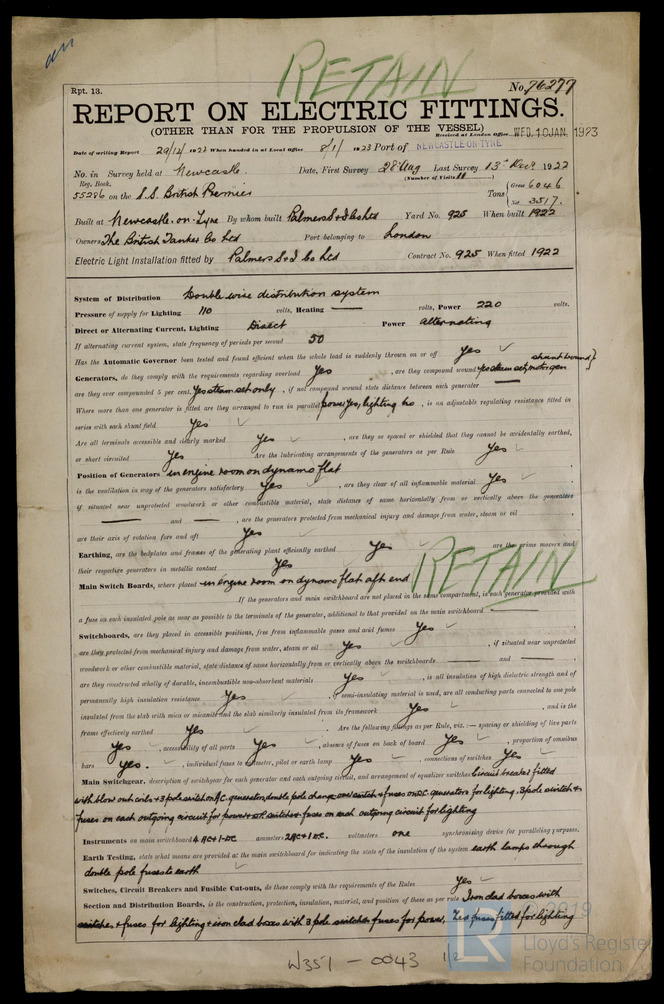 RETAIN
Rpt. 13.
No. 76277
REPORT ON ELECTRIC FITTINGS.
(OTHER THAN FOR THE PROPULSION OF THE VESSEL)
Received at London Office WED. 10 JAN. 1923
Date of writing Report 29/12/1922 When handed in at Local Office 8/1/1923 Port of NEWCASTLE-ON-TYNE
No. in Survey held at Newcastle. Date, First Survey 28 Aug Last Survey 13th Dec 1922
Reg. Book. (Number of Visits 11)
55286 on the S.S. British Premier Tons Gross 6046 Net 3517.
Built at Newcastle-on-Tyne By whom built Palmers S & I Co Ltd Yard No. 925 When built 1922
Owners The British Tanker Co Ltd Port belonging to London
Electric Light Installation fitted by Palmers S & I Co Ltd Contract No. 925 When fitted 1922
System of Distribution Double wire distribution system
Pressure of supply for Lighting 110 volts, Heating — volts, Power 220 volts.
Direct or Alternating Current, Lighting Direct Power Alternating
If alternating current system, state frequency of periods per second 50
Has the Automatic Governor been tested and found efficient when the whole load is suddenly thrown on or off Yes shunt wound
Generators, do they comply with the requirements regarding overload Yes , are they compound wound yes steam set, motor gen
are they over compounded 5 per cent. Yes steam set only , if not compound wound state distance between each generator —
Where more than one generator is fitted are they arranged to run in parallel power yes, lighting no , is an adjustable regulating resistance fitted in
series with each shunt field Yes
Are all terminals accessible and clearly marked Yes , are they so spaced or shielded that they cannot be accidentally earthed,
or short circuited Yes Are the lubricating arrangements of the generators as per Rule Yes
Position of Generators in engine room on dynamo flat
is the ventilation in way of the generators satisfactory Yes , are they clear of all inflammable material Yes ,
if situated near unprotected woodwork or other combustible material, state distance of same horizontally from or vertically above the generators
— and — , are the generators protected from mechanical injury and damage from water, steam or oil
are their axis of rotation fore and aft Yes
Earthing, are the bedplates and frames of the generating plant efficiently earthed Yes are the prime movers and
their respective generators in metallic contact Yes
Main Switch Boards, where placed in engine room on dynamo flat aft end
RETAIN
If the generators and main switchboard are not placed in the same compartment, is each generator provided with
a fuse on each insulated pole as near as possible to the terminals of the generator, additional to that provided on the main switchboard
Switchboards, are they placed in accessible positions, free from inflammable gases and acid fumes Yes ,
are they protected from mechanical injury and damage from water, steam or oil Yes , if situated near unprotected
woodwork or other combustible material, state distance of same horizontally from or vertically above the switchboards — and — ,
are they constructed wholly of durable, incombustible non-absorbent materials Yes , is all insulation of high dielectric strength and of
permanently high insulation resistance Yes , if semi-insulating material is used, are all conducting parts connected to one pole
insulated from the slab with mica or micanite and the slab similarly insulated from its framework Yes , and is the
frame effectively earthed Yes . Are the following fittings as per Rule, viz. :— spacing or shielding of live parts
Yes , accessibility of all parts Yes , absence of fuses on back of board Yes , proportion of omnibus
bars Yes. , individual fuses to voltmeter, pilot or earth lamp Yes , connections of switches Yes
Main Switchgear, description of switchgear for each generator and each outgoing circuit, and arrangement of equalizer switches Circuit breaker fitted
with blow out coils & 3 pole switch on A.C. generator, double pole change over switch & fuses on D.C. generators for lighting. 3 pole switch &
fuses on each outgoing circuit for power & D.P. switch & fuses on each outgoing circuit for lighting
Instruments on main switchboard 4 AC & 1-DC ammeters 2 AC & 1 DC. voltmeters one synchronising device for paralleling purposes.
Earth Testing, state what means are provided at the main switchboard for indicating the state of the insulation of the system earth lamps through
double pole fuses to earth
Switches, Circuit Breakers and Fusible Cut-outs, do these comply with the requirements of the Rules Yes
Section and Distribution Boards, is the construction, protection, insulation, material, and position of these as per rule Iron clad boxes with
switches & fuses for lighting & iron clad boxes with 3 pole switches fuses for power, fuses fitted for lighting
© 2019
LR
Lloyd's Register
Foundation
W351 - 0043 1/2